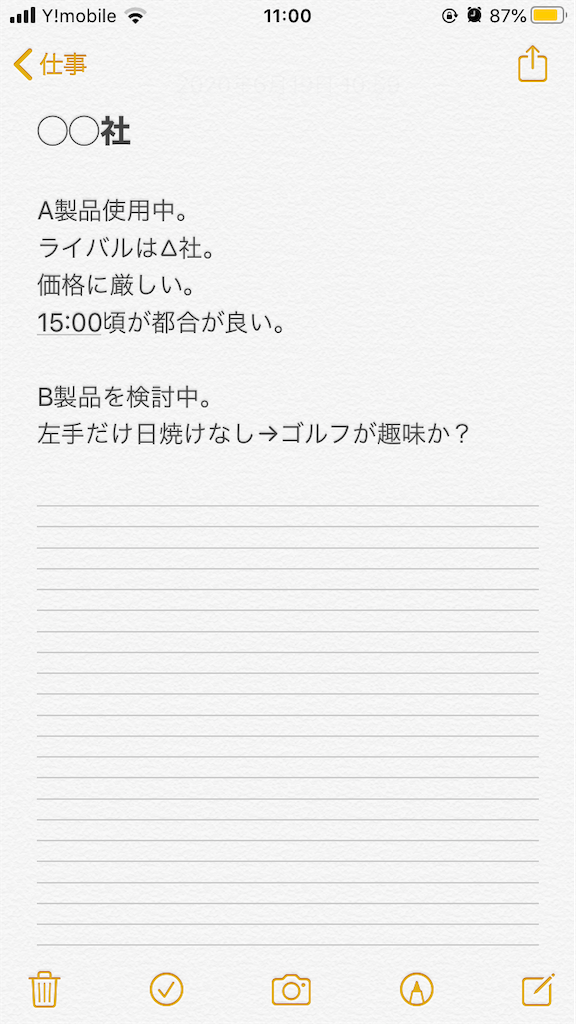 Y!mobile 11:00 87%
仕事
〇〇社
A製品使用中。
ライバルはΔ社。
価格に厳しい。
15:00頃が都合が良い。
B製品を検討中。
左手だけ日焼けなし→ゴルフが趣味か？